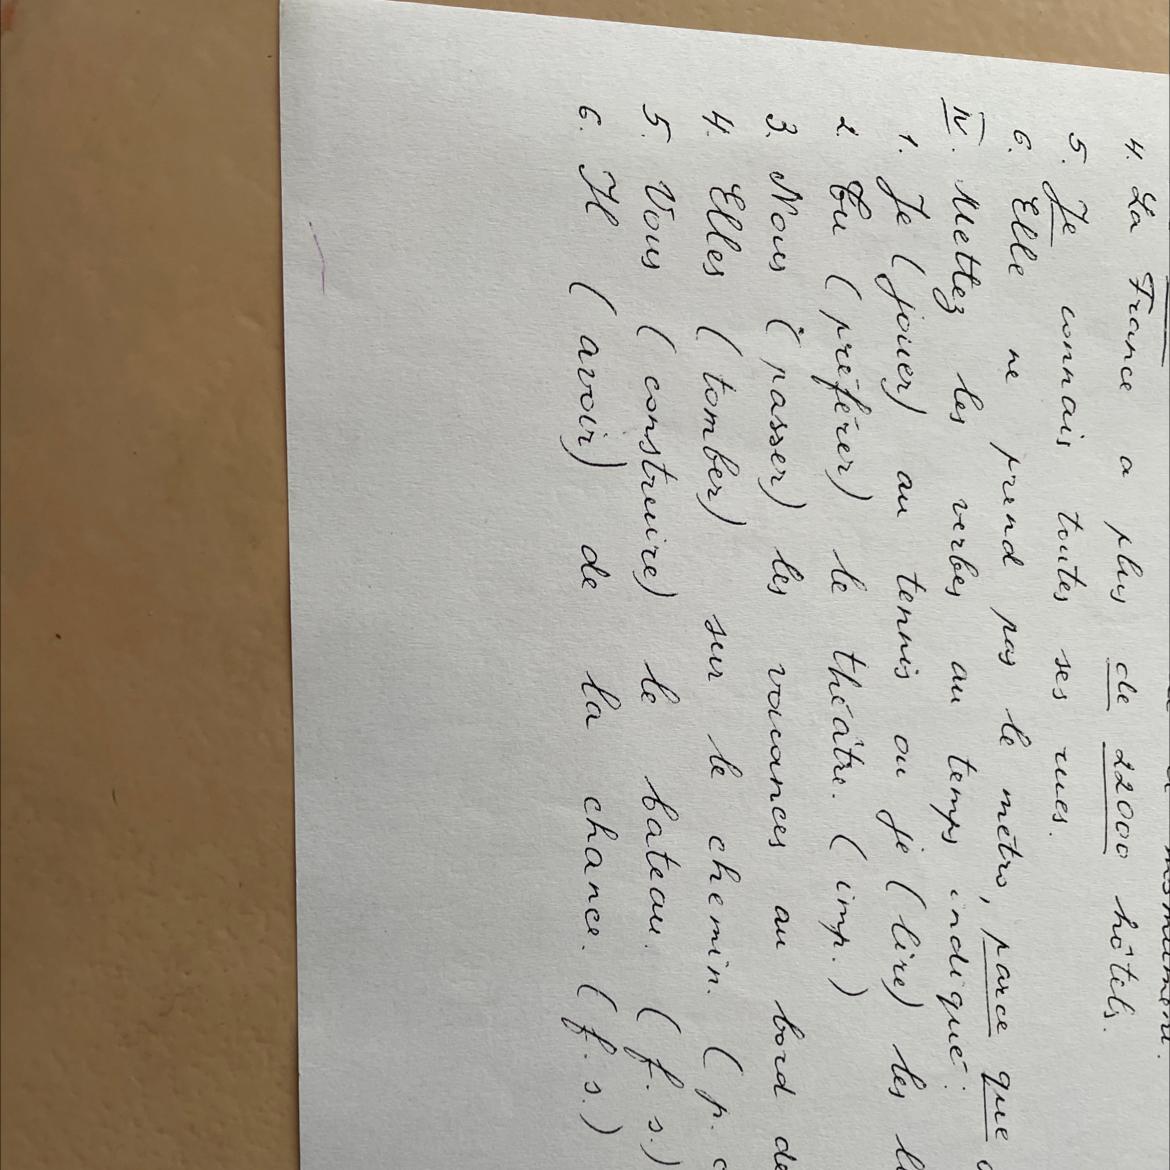 monument.
4. La France a plus de 22000 hôtels.
5. Je connais toutes ses rues.
6. Elle ne prend pas le métro, parce que
IV. Mettez les verbes au temps indiqué:
1. Je (jouer) au tennis ou je (lire) les
2. Tu (préférer) le théâtre. (imp.)
3. Nous (passer) les vacances au bord de
4. Elles (tomber) sur le chemin. (p. c
5. Vous (construire) le bateau. (f. s.)
6. Il (avoir) de la chance. (f. s.)